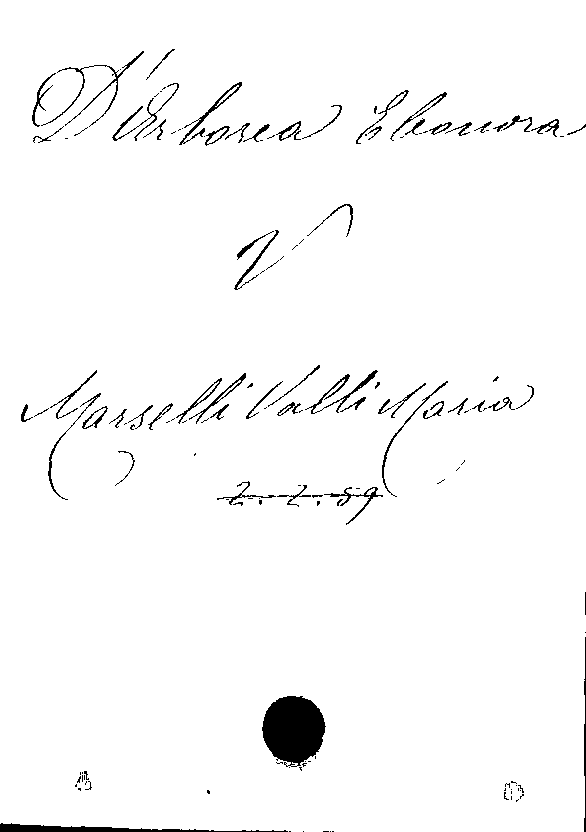 D'Arborea Eleonora
V
Marselli Valli Maria
2.2.89